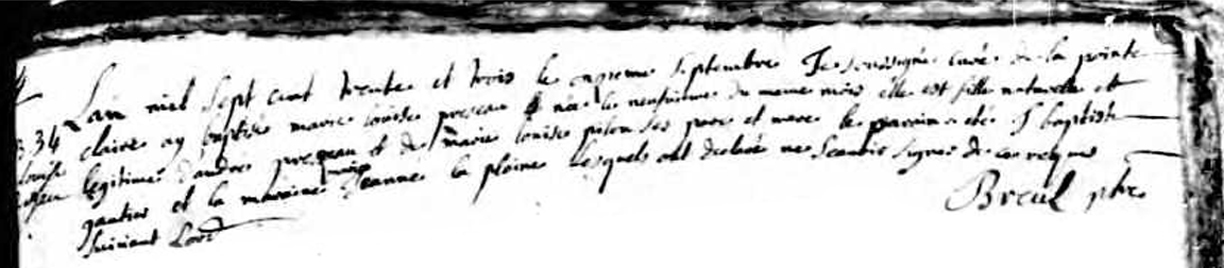 Lan mil sept cent trente et trois le onzieme septembre Je soussigné curé de la pointe
claire ay baptisé marie louise preseau née le neufuieme du meme mois elle est fille naturelle et
legitime d'andre preseau et de marie louise pilon ses pere et mere le parain a eté J baptiste
gautier et la maraine Jeanne la plaine lesquels ont declaré ne scauoir signer de ce requis
suiuant Lord
Breul ptre
334
louise